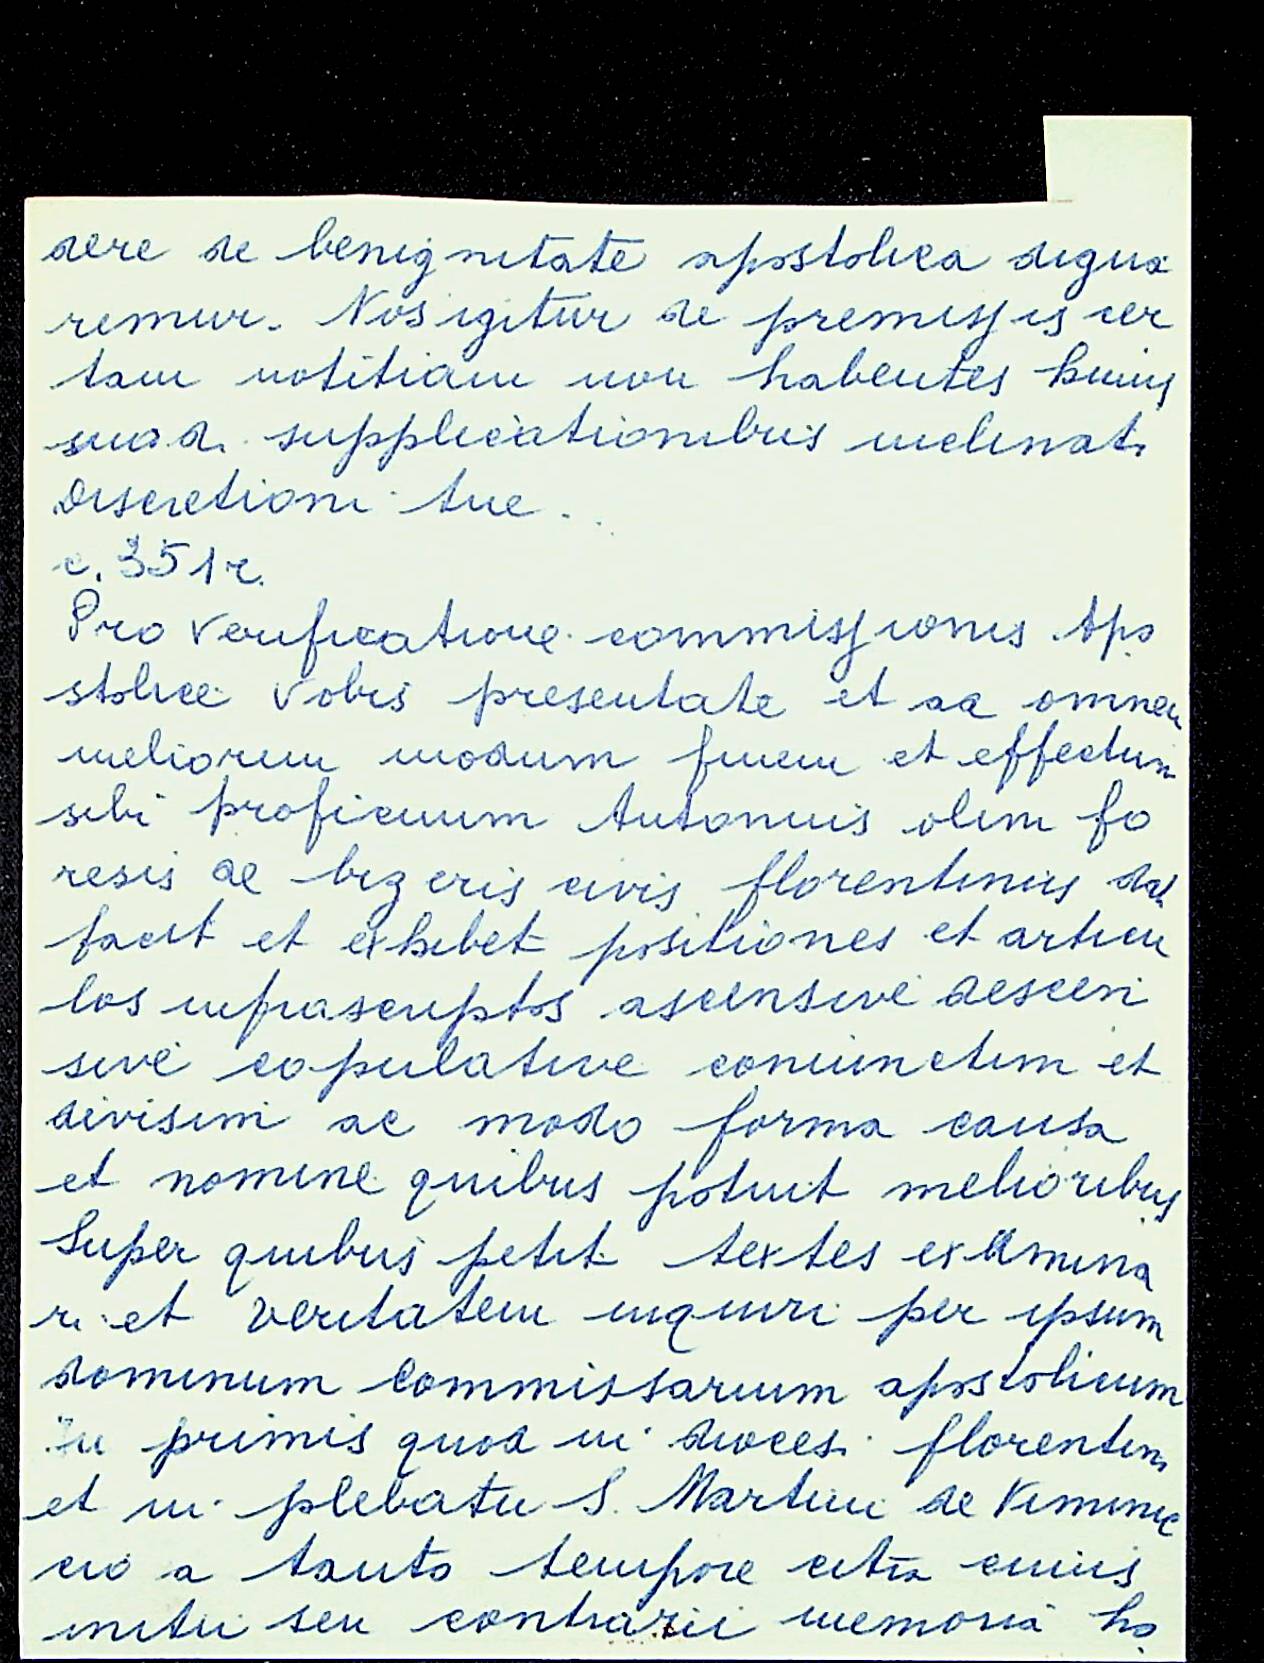 dere de benignitate apostolica digna
remur. Nos igitur de premissis cer
tam notitiam non habentes huius
mod. supplicationibus inclinati
discretioni tue ...
c. 351 r.
Pro verificatione commissionis Apo
stolice vobis presentate et ad omnem
meliorem modum finem et effectum
sibi proficuum Antonius olim
resis de civis florentinus dat
facit et exhibet positiones et articu
los infrascriptos ascensive descen
sive copulative coniunctim et
divisim ac modo forma causa
et nomine quibus potuit melioribus
Super quibus petit textes examina
ri et veritatem inquiri per ipsum
dominum Commissarium apostolicum
In primis quod in diocesi florentin
et in plebatu S. Martini de Viminic
cio a tanto tempore citra cuius
initii seu contrarii memoria ho